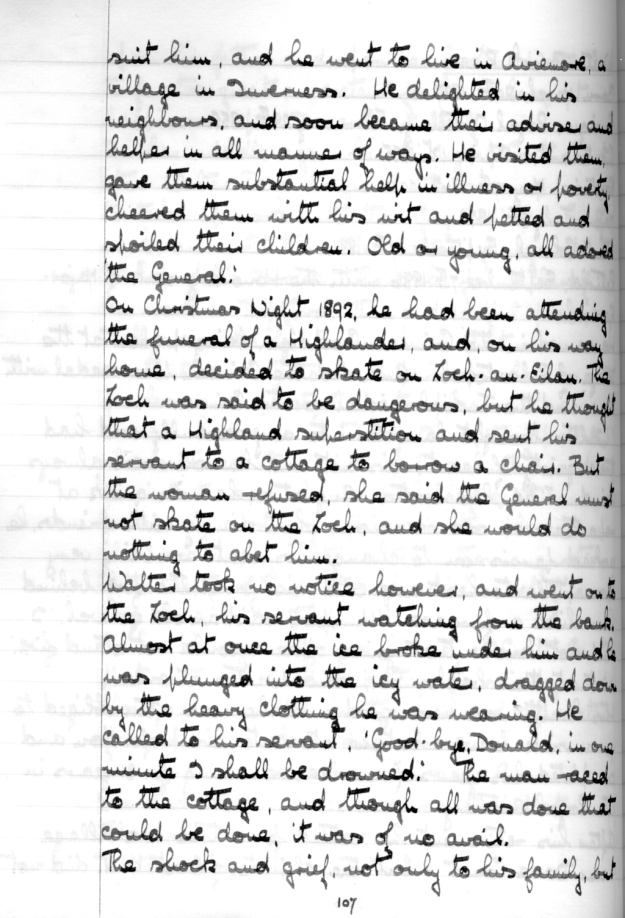 suit him, and he went to live in Aviemore, a
village in Inverness. He delighted in his
neighbours, and soon became their adviser and
helper in all manner of ways. He visited them,
gave them substantial help in illness or poverty,
cheered them with his wit and petted and
spoiled their children. Old or young, all adored
'the General.'
On Christmas Night 1892, he had been attending
the funeral of a Highlander, and, on his way
home, decided to skate on Loch-an-Eilan. The
Loch was said to be dangerous, but he thought
that a Highland superstition and sent his
servant to a cottage to borrow a chair. But
the woman refused, she said the General must
not skate on the Loch, and she would do
nothing to abet him.
Walter took no notice however, and went on to
the Loch, his servant watching from the bank.
Almost at once the ice broke under him and he
was plunged into the icy water, dragged down
by the heavy clothing he was wearing. He
called to his servant, 'Good-bye, Donald, in one
minute I shall be drowned.' The man raced
to the cottage, and though all was done that
could be done, it was of no avail.
The shock and grief, not only to his family, but
107